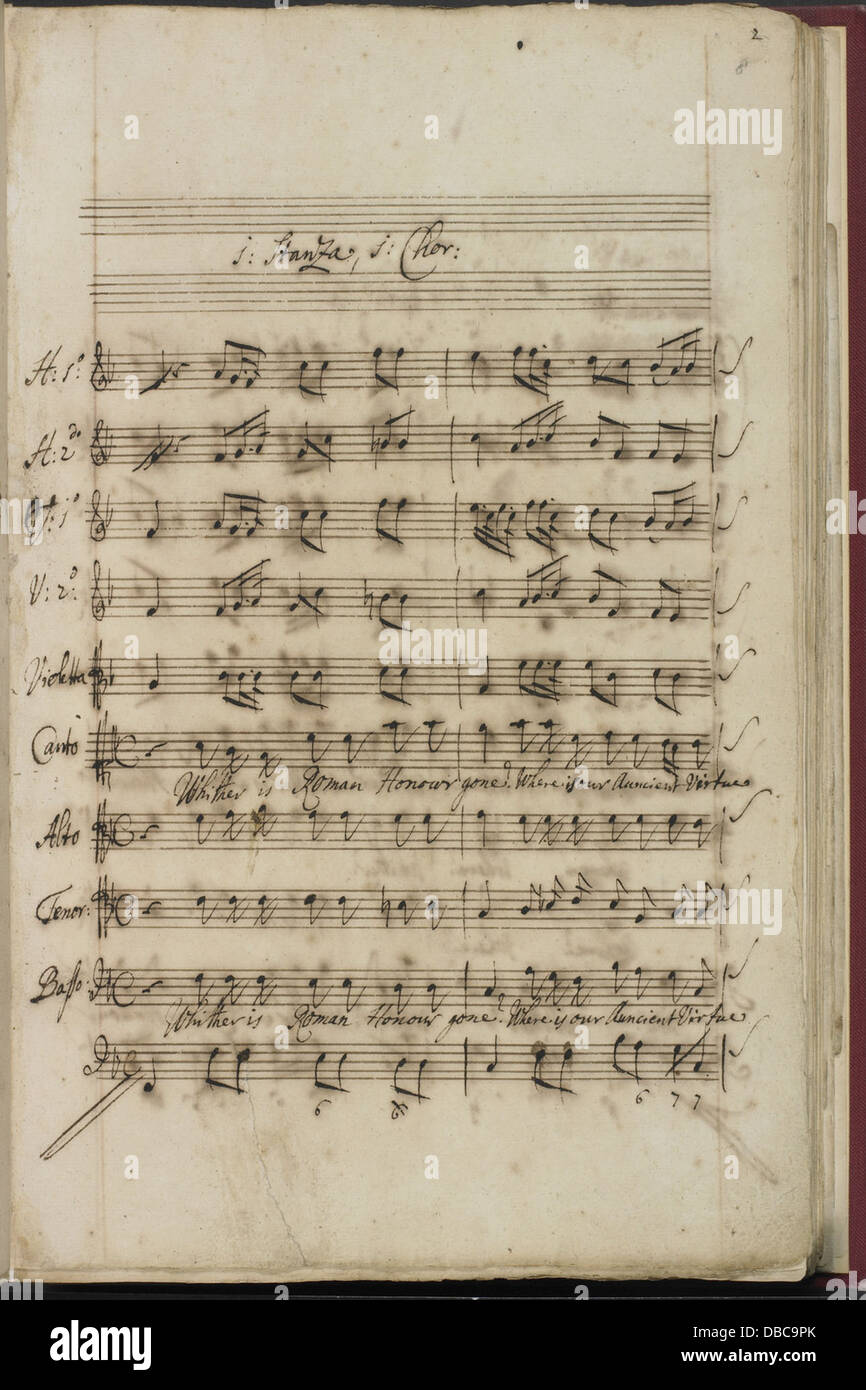 2
8
1: Stanza, 1: Chor:
H: 1º
H: 2do
V: 1º
V: 2º
Violetta
Canto
Whither is Roman Honour gone? Where is our Auncient Virtue
Alto
Tenor:
Basso:
Whither is Roman Honour gone? Where is our Auncient Virtue
6 6 6 7 7
a
alamy
Image ID: DBC9PK
www.alamy.com